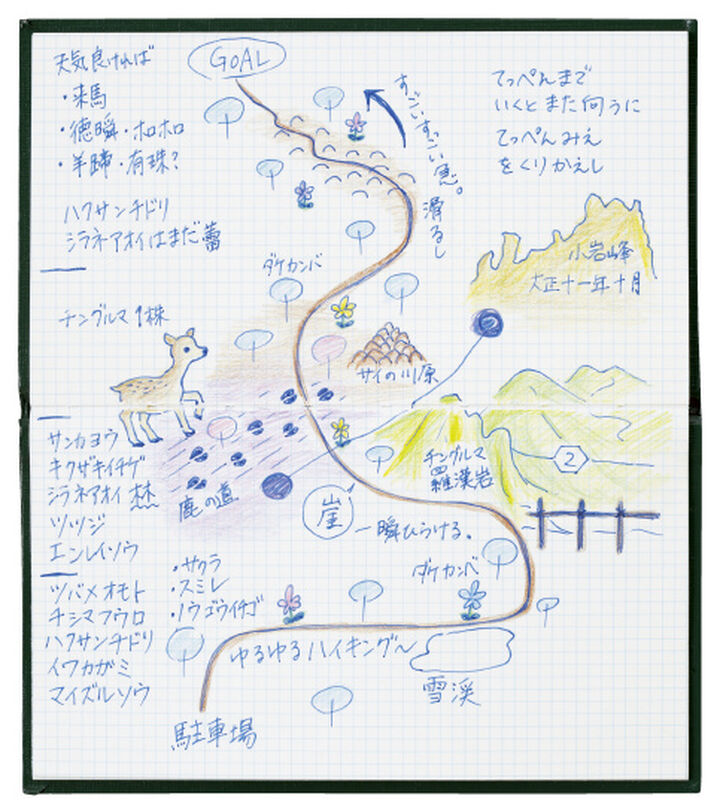 GOAL
天気良ければ
・来馬
・徳瞬・ホロホロ
・羊蹄・有珠?
ハクサンチドリ
シラネアオイはまだ蕾
すごいすっごい急。
滑るし
てっぺんまで
いくとまた向うに
てっぺんみえ
をくりかえし
小岩峰
大正十一年十月
ダケカンバ
チングルマ1株
サイの川原
サンカヨウ
キクザキイチゲ
シラネアオイ
ツツジ
エンレイソウ
鹿の道
チングルマ
羅漢岩
2
崖
一瞬ひらける。
ダケカンバ
・サクラ
・スミレ
・ノウゴウイチゴ
ツバメオモト
チシマフウロ
ハクサンチドリ
イワカガミ
マイズルソウ
ゆるゆるハイキング〜
雪渓
駐車場